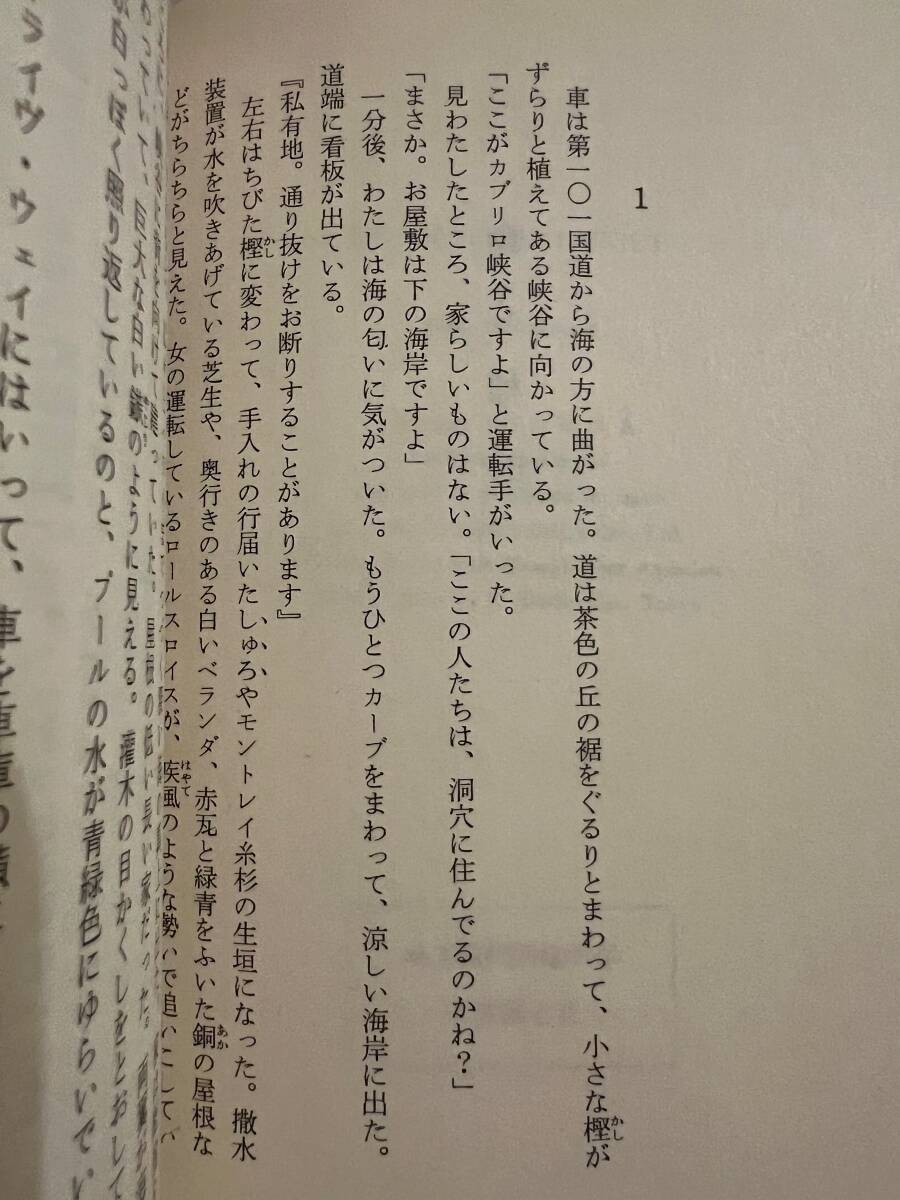 1
車は第一〇一国道から海の方に曲がった。道は茶色の丘の裾をぐるりとまわって、小さな樫が
ずらりと植えてある峡谷に向かっている。
「ここがカブリロ峡谷ですよ」と運転手がいった。
見わたしたところ、家らしいものはない。「ここの人たちは、洞穴に住んでるのかね？」
「まさか。お屋敷は下の海岸ですよ」
一分後、わたしは海の匂いに気がついた。もうひとつカーブをまわって、涼しい海岸に出た。
道端に看板が出ている。
『私有地。通り抜けをお断りすることがあります』
左右はちびた樫に変わって、手入れの行届いたしゅろやモントレイ糸杉の生垣になった。撒水
装置が水を吹きあげている芝生や、奥行きのある白いベランダ、赤瓦と緑青をふいた銅の屋根な
どがちらちらと見えた。女の運転しているロールスロイスが、疾風のような勢いで追いこしてい
っていた。屋根の低い長い家だった。
わっていて、巨大な白い
のように見える。灌木の目かくしをとおして
白っぽく照り返しているのと、プールの水が青緑色にゆらいでい
ライヴ・ウェイにはいって、車を車庫の